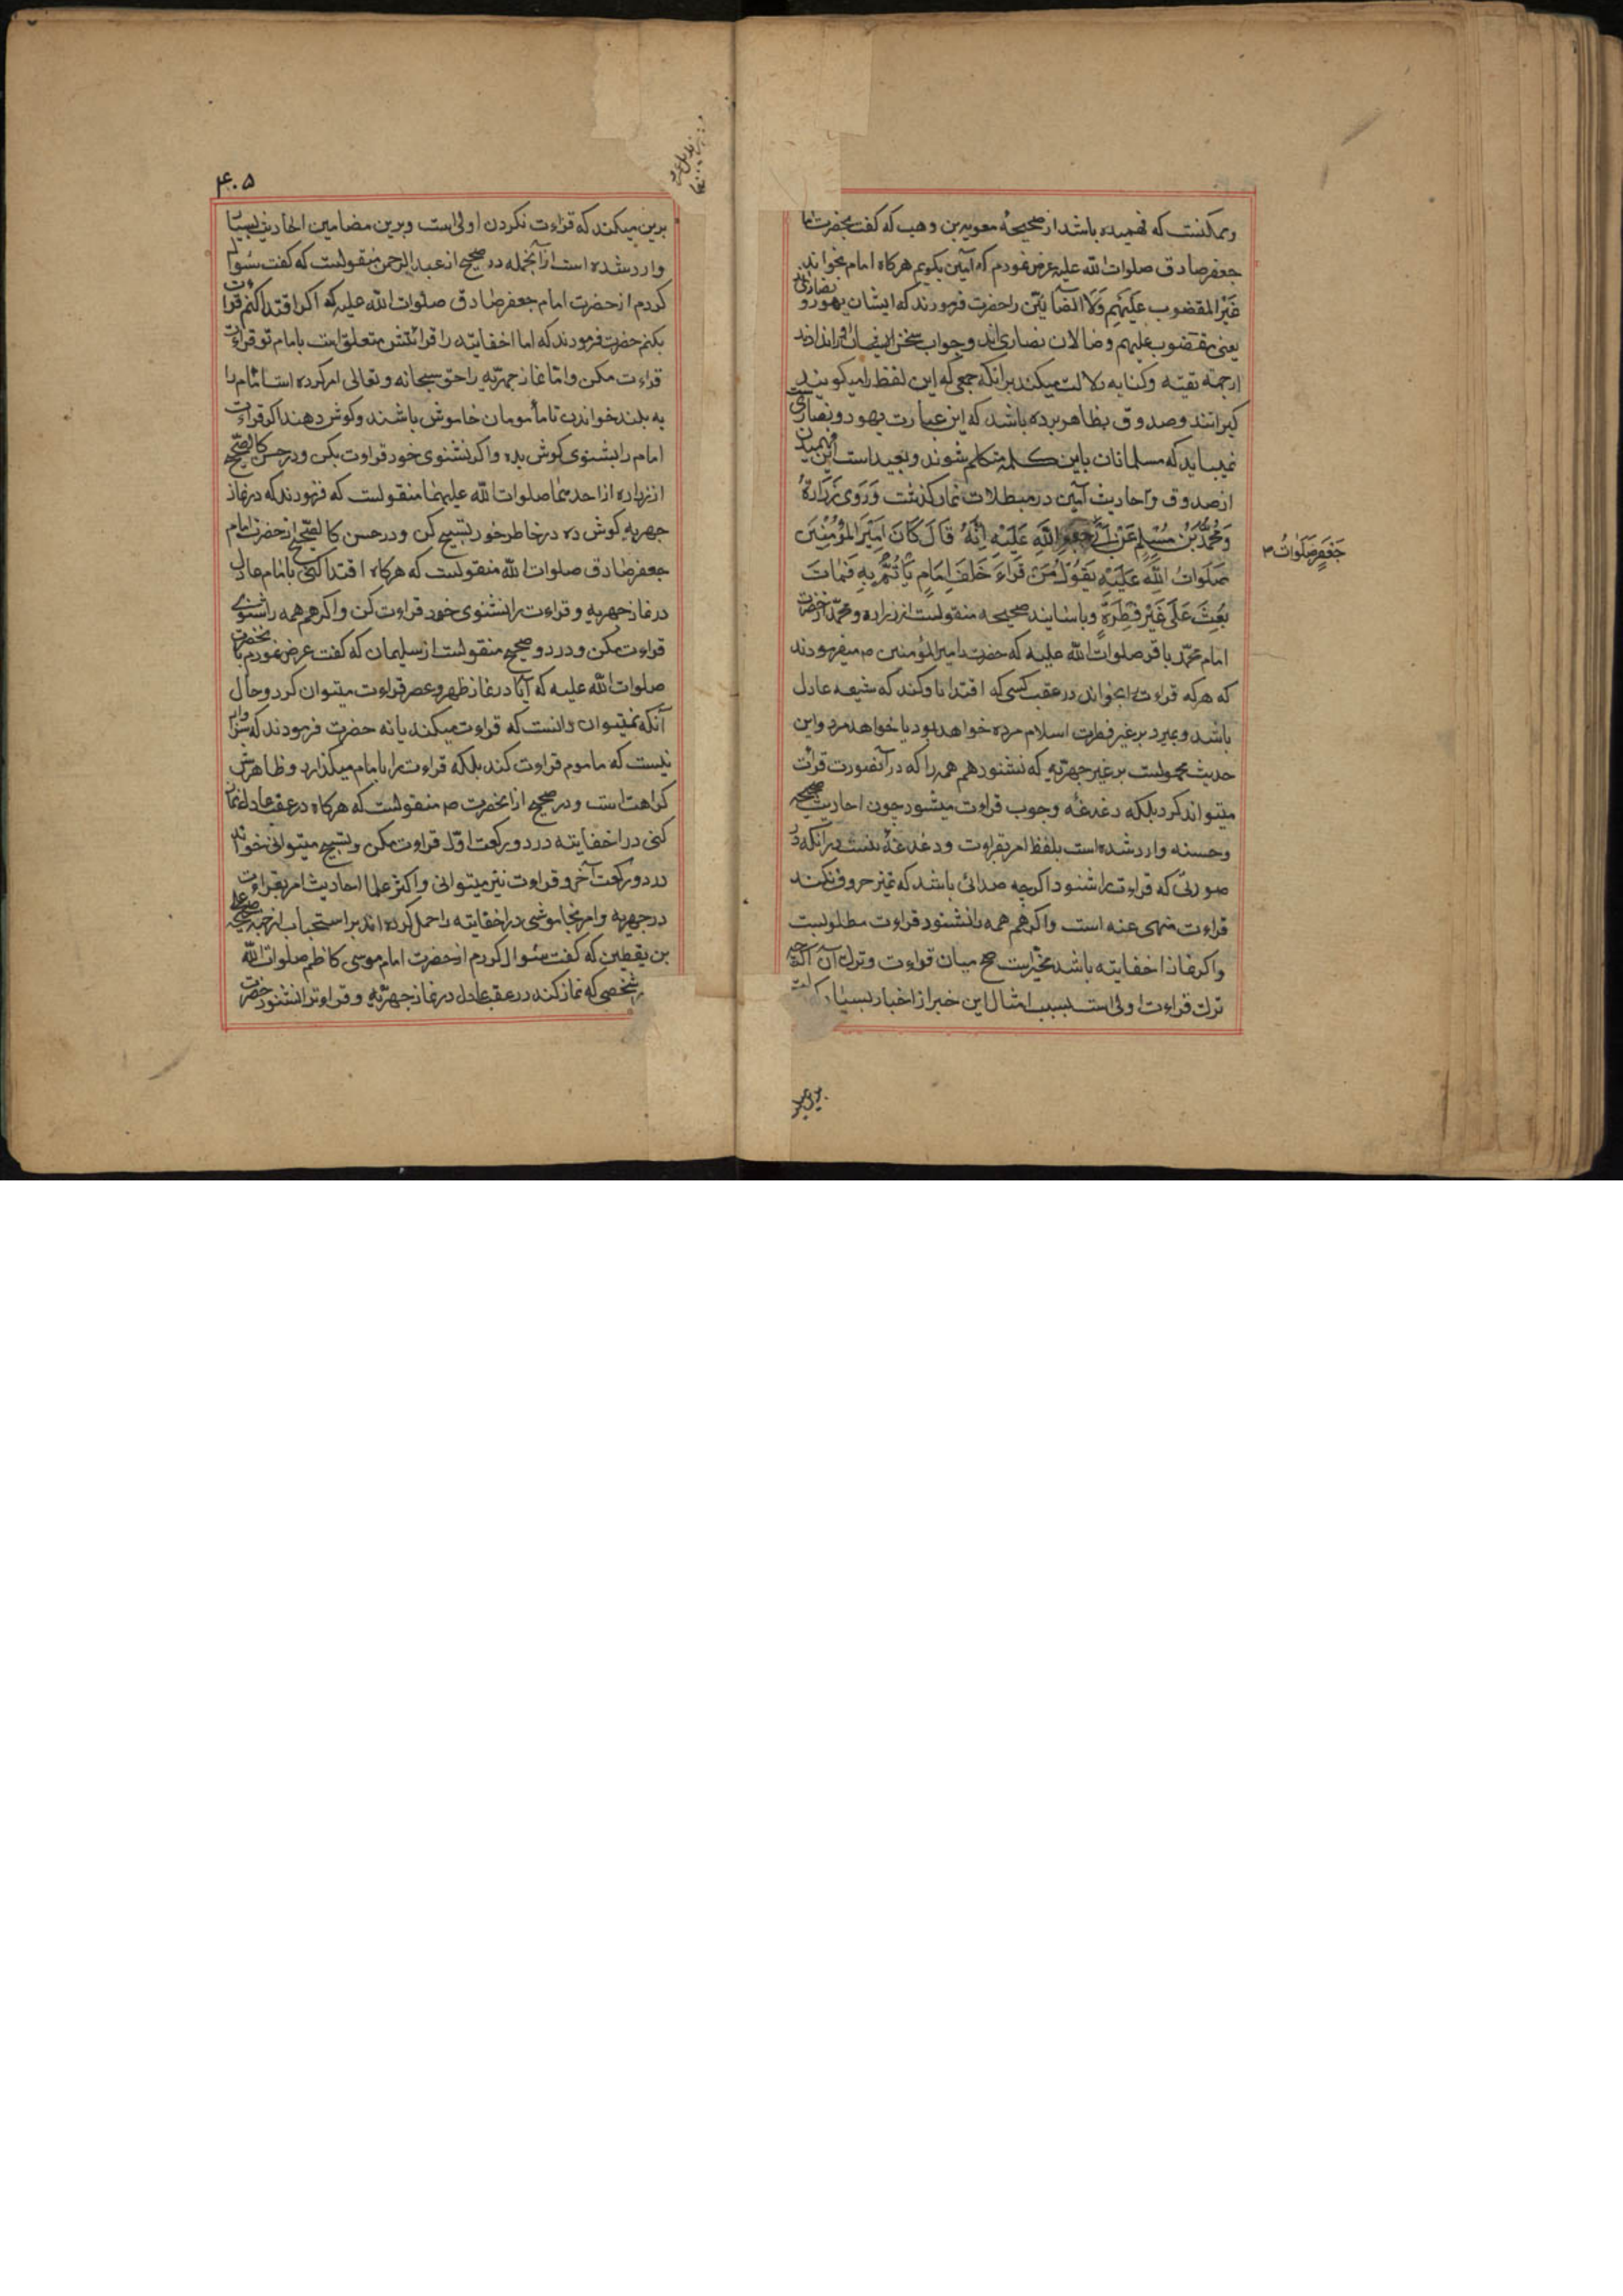 وممکنست که فهمیده باشد از صحیحهٔ معویه بن وهب که کفت بحضرت امام
جعفر صادق صلوات الله علیه عرض نمودم که آمین بکویم هرکاه امام بخواند
غَیْرِ المغضوب عَلَیْهِم وَلَا الضّآلّین را حضرت فرمودند که ایشان یهود و نصاری‌اند
یعنی مغضوب علیهم و ضالان نصاری‌اند و جواب سخن ایشان را نداند
از جهة تقیّه وکنایه دلالت میکند برانکه جمعی که این لفظ را میکویند
کبرانند وصدوق بظاهر برده باشد که این عبارت یهود و نصاری است
نمیباید که مسلمانان باین کلمه متکلم شوند و بعید است این فهمیدن
از صدوق و احادیث آمین در مبطلات نماز کذشت وَرَوَی زُرَارَةُ
وَمُحَمَّدُ بْنُ مُسْلِمٍ عَنْ اَبِی جعفر صلوات اللهِ عَلَیْهِ اِنَّهُ قَالَ کَانَ اَمِیْرَ المُؤْمِنْینَ
صَلَوَاتُ اللهِ عَلَیْهِ یَقُولُ مَنْ قَرَاءَ خَلْفَ اِمَامٍ یَأتَمُّ بِهِ فَمَاتَ
بُعِثَ عَلَی غَیْرِ فِطْرَةٍ وباسانید صحیحه منقولست از زراره و محمّد از حضرت
امام محمّد باقر صلوات الله علیه که حضرت امیر المؤمنین ص میفرمودند
که هرکه قراءت را بخواند در عقب کسی که اقتدا باو کند که شیعه عادل
باشد و بمیرد بر غیر فطرت اسلام مرده خواهد بود یا خواهد مرد واین
حدیث محمولست بر غیر جهریّه که نشنود همهمه را که در آنصورت قرائت
میتواند کرد بلکه دغدغه وجوب قراءت میشود چون احادیث صحیحه
وحسنه وارد شده است بلفظ امر بقراءت ودغدغهٔ نیست درانکه در
صورتی که قراءت را شنود اکرچه صدائی باشد که تمیز حروف نکند
قراءت منهی عنه است واکر همهمه را نشنود قراءت مطلوبست
واکر نماز اخفاتیه باشد مخیر است میان قراءت وترک آن اکرچه
ترک قراءت اولی است بسبب امثال این خبر از اخبار بسیار که
جَعْفَرٍ صَلَوَاتُ
۴۰۵
برین میکند که قراءت نکردن اولی است وبرین مضامین احادیث بسیار
وارد شده است ازآنجمله در صحیح از عبد الرحمن منقولست که کفت سئوال
کردم از حضرت امام جعفر صادق صلوات الله علیه که اکر اقتدا کنم قراءت
بکنم حضرت فرمودند که اما اخفاتیّه را قرائتش متعلق است بامام تو قراءت
قراءت مکن وامّا نماز جهریّه را حق سبحانه وتعالی امر کرده است امام را
به بلند خواندن تا مأمومان خاموش باشند وکوش دهند اکر قراءت
امام را بشنوی کوش بده واکر نشنوی خود قراوت بکن ودر حسن کالصّحیح
از زراره از احدهما صلوات الله علیهما منقولست که فرمودند که در نماز
جهریه کوش ده در خاطر خود تسبیح کن ودر حسن کالصّحیح از حضرت امام
جعفر صادق صلوات الله منقولست که هرکاه اقتدا کنی بامام عادل
در نماز جهریه وقراءت را نشنوی خود قراءت کن واکر همهمه را شنوی
قراءت مکن ودر دو صحیح منقولست از سلیمان که کفت عرض نمودم بآنحضرت
صلوات الله علیه که آیا در نماز ظهر وعصر قراءت میتوان کرد وحال
آنکه نمیتوان دانست که قراءت میکند یا نه حضرت فرمودند که سزاوار
نیست که ماموم قراءت کند بلکه قراءت را بامام میکذارد وظاهرش
کراهت است ودر صحیح از آنحضرت ص منقولست که هرکاه در عقب عادل نماز
کنی در اخفاتیّه در دو رکعت اوّل قراوت مکن وتسبیح میتوانی خواند
در دو رکعت آخر وقراءت نیز میتوانی واکثر علما احادیث امر بقراءت
در جهریه وامر بخاموشی در اخفاتیه را حمل کرده‌اند بر استحباب از جهة صحیحهٔ علی
بن یقطین که کفت سئوال کردم از حضرت امام موسی کاظم صلوات الله
شخصی که نماز کند در عقب عادل در نماز جهریّه وقراءت را نشنود حضرت